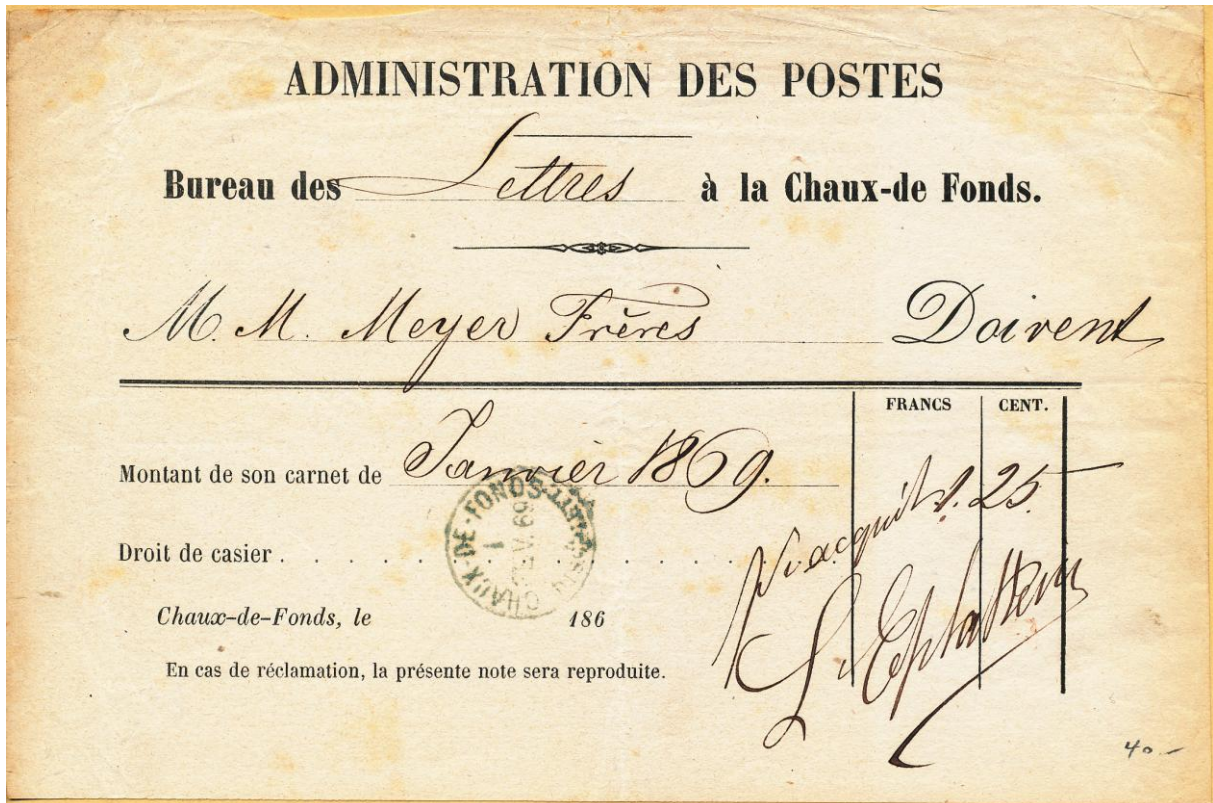 ADMINISTRATION DES POSTES
Bureau des Lettres à la Chaux-de Fonds.
M. M. Meyer Frères Doivent
FRANCS CENT.
Montant de son carnet de Janvier 1869. 1. 25.
Droit de casier . . . . . . . . . . . . .
Pr. acquit
CHAUX-DE-FONDS-LETT
1
FEV. 69
Chaux-de-Fonds, le 186
En cas de réclamation, la présente note sera reproduite.
40.-